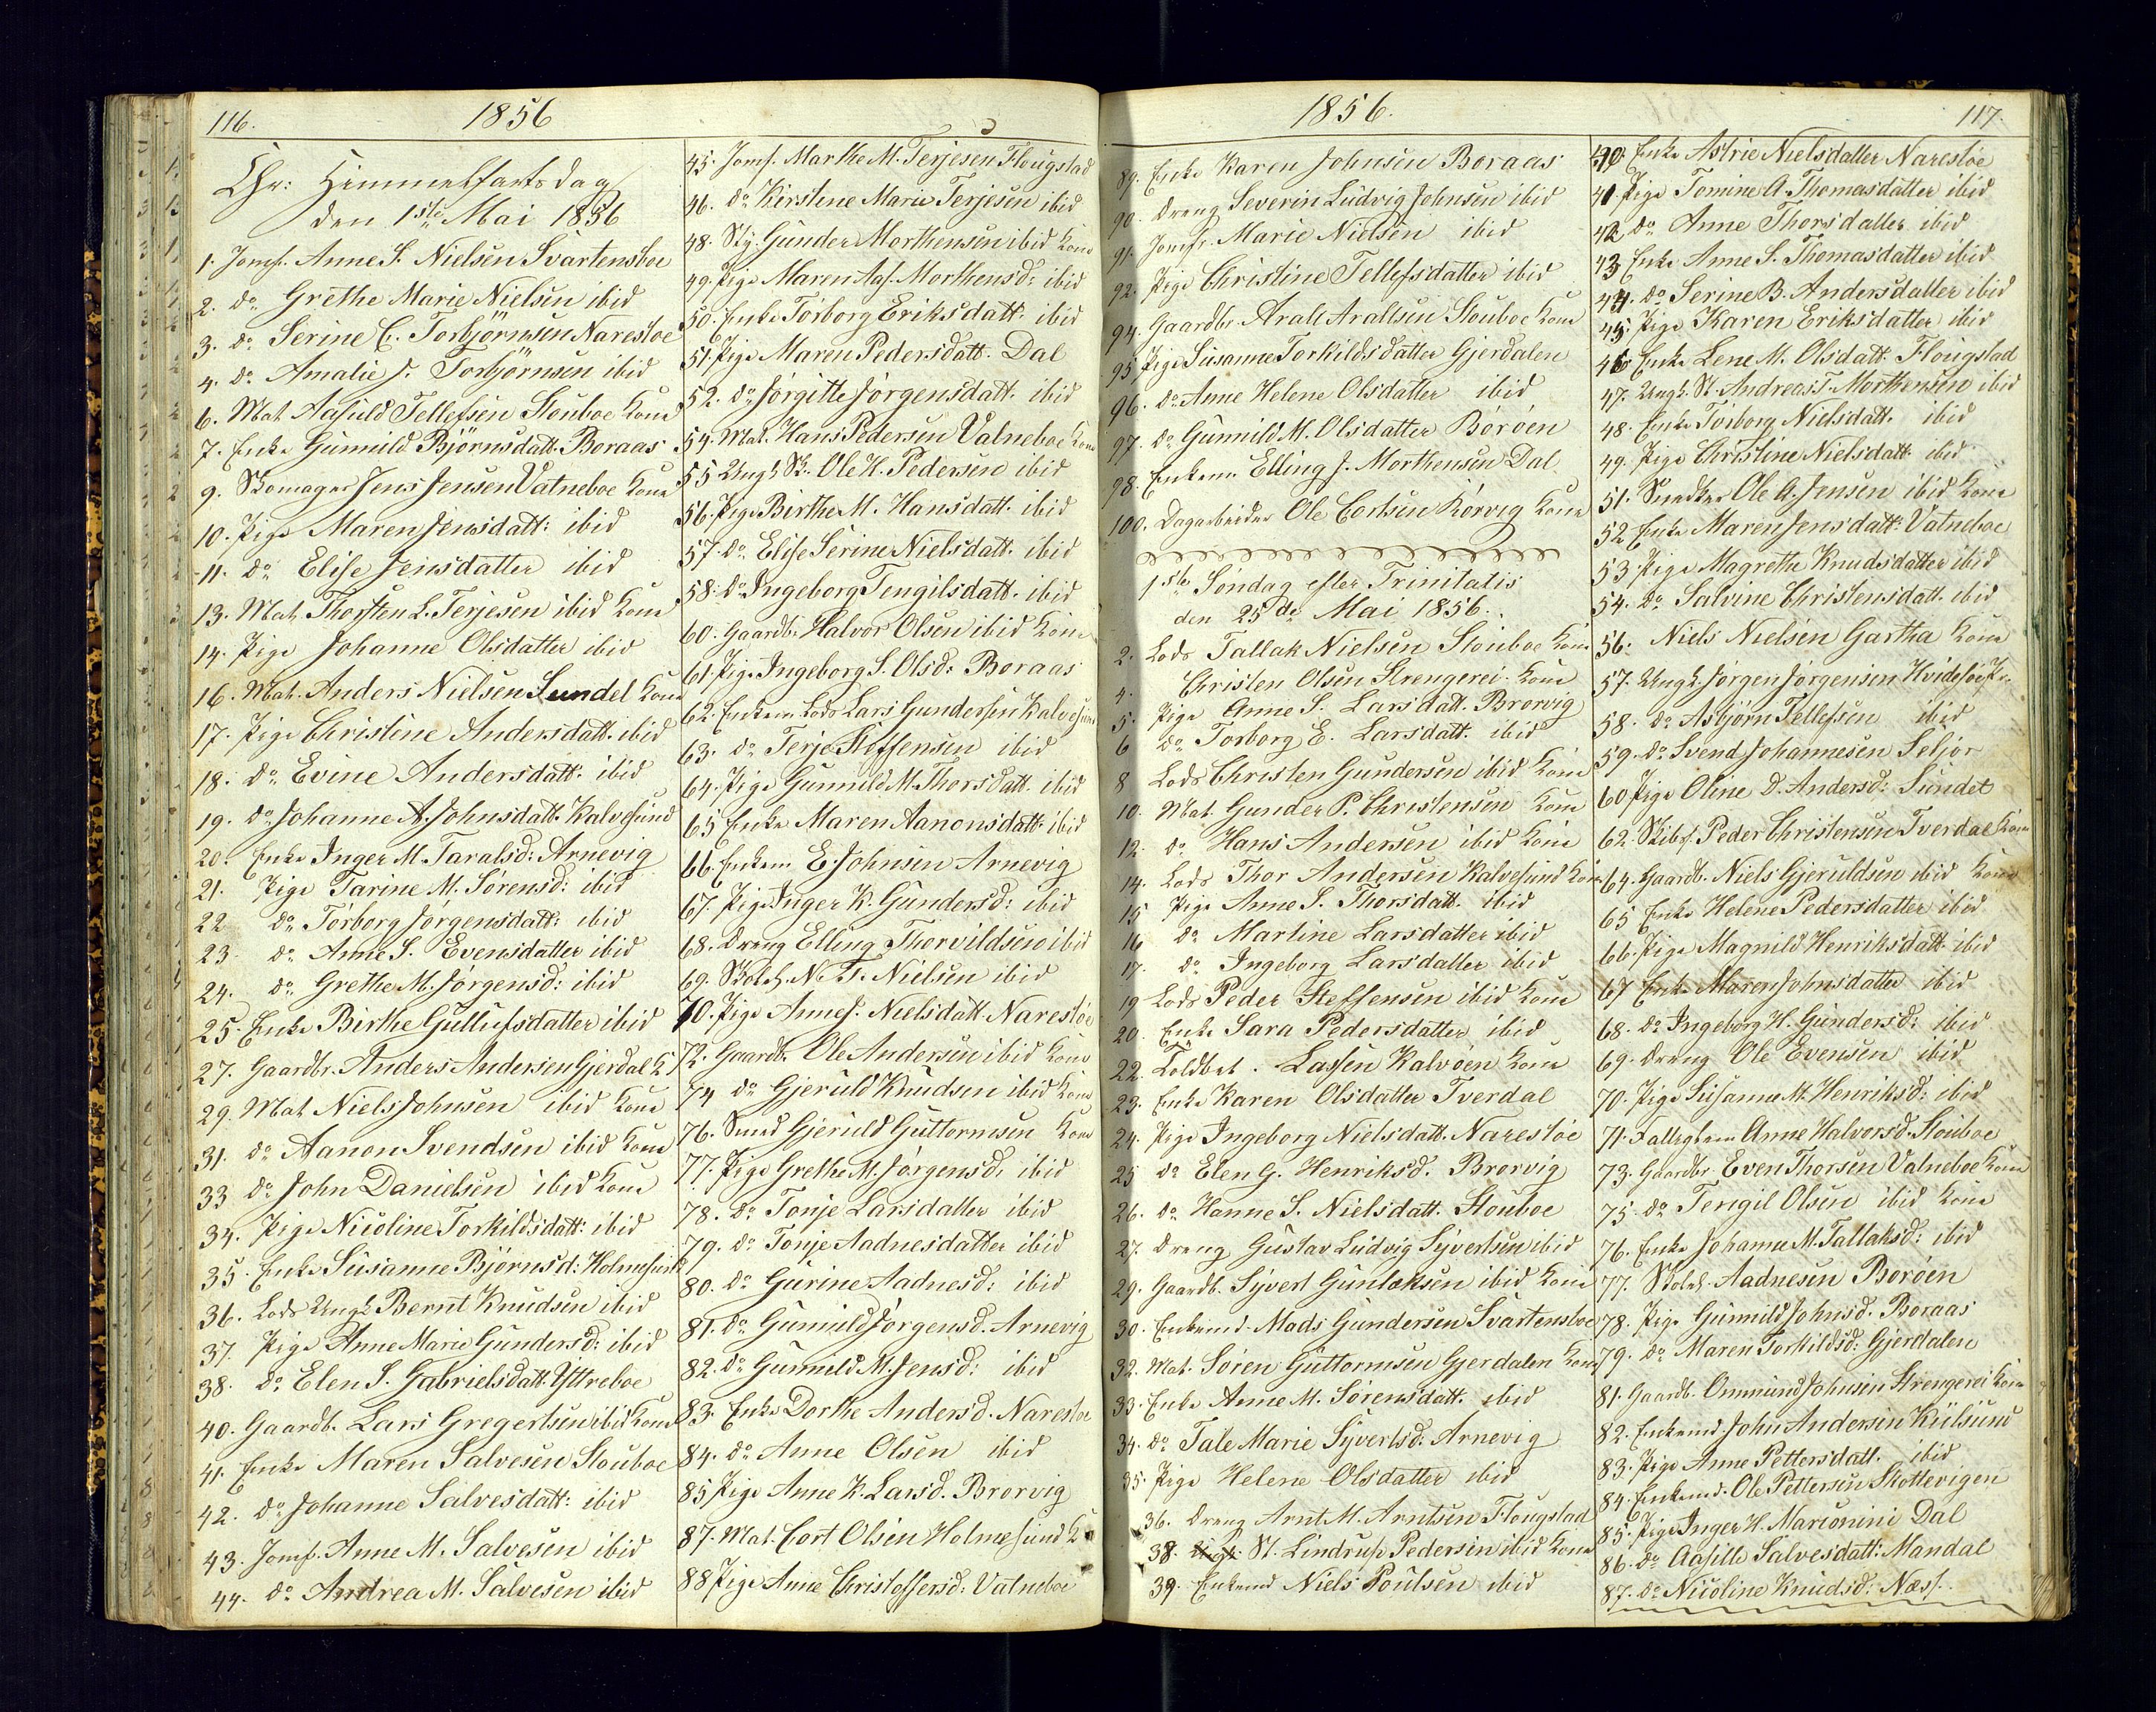 116.
1856
Chr: Himmelfartsdag
den 1ste Mai 1856
1. Jomf. Anne S. Nielsen Svartensboe
2. do Grethe Marie Nielsen ibid
3. do Serine C. Torbjörnsen Narestoe
4. do Amalie J. Torbjörnsen ibid
6. Mat Aasuld Tellefsen Stouboe Kone
7. Enke Gunnild Björnsdatt. Boraas
9. Skomager Jens Jensen Vatneboe Kone
10. Pige Maren Jensdatt: ibid
11. do Elise Jensdatter ibid
13. Mat. Thorsten L. Terjesen ibid Kone
14. Pige Johanne Olsdatter ibid
16. Mat. Anders Nielsen Sundet Kone
17. Pige Christine Andersdatt. ibid
18. do Evine Andersdatt. ibid
19. do Johanne A. Johnsdatt. Kalvesund
20. Enke Inger M. Taralsd: Arnevig
21. Pige Tarine M. Sørensd: ibid
22 do Torborg Jørgensdatt: ibid
23. do Anne S. Evensdatter ibid
24. do Grethe M. Jørgensd: ibid
25. Enke Birthe Gullufsdatter ibid
27. Gaardbr. Anders Andersen Gjerdal K
29. Mat Niels Johnsen ibid Kone
31. do Aanon Svendsen ibid Kone
33 do John Danielsen ibid Kone
34. Pige Nicoline Torkildsdatt: ibid
35. Enke Susanne Bjørnsd: Holmesund
36. Lods Ungk Bernt Knudsen ibid
37. Pige Anne Marie Gundersd: ibid
38. do Elen S. Gabrielsdatt. Yttreboe
40. Gaardb. Lars Gregertsen ibid Kone
41. Enke Maren Salvesen Stouboe
42. do Johanne Salvesdatt: ibid
43. Jomf. Anne M. Salvesen ibid
44. do Andrea M. Salvesen ibid
45. Jomf. Marthe M. Terjesen Flougstad
46. do Kirstine Marie Terjesen ibid
48. Sky. Gunder Morthensen ibid Kone
49. Pige Maren Aas. Morthensd: ibid
50. Enke Torborg Eriksdatt. ibid
51. Pige Maren Pedersdatt. Dal
52. do Jørgitte Jørgensdatt. ibid
54. Mat. Hans Pedersen Vatneboe Kone
55 Ungk St. Ole H. Pedersen ibid
56. Pige Birthe M. Hansdatt. ibid
57. do Elise Serine Nielsdatt. ibid
58. do Ingeborg Tengilsdatt. ibid
60. Gaardb. Halvor Olsen ibid Kone
61. Pige Ingeborg S. Olsd: Boraas
62. Enkem. Lods Lars Gundersen Kalvesund
63. do Terje Stoffensen ibid
64. Pige Gunnild M. Thorsdatt. ibid
65 Enke Maren Aanonsdatt. ibid
66. Enkem E. Johnsen Arnevig
67. Pige Inger K. Gundersd: ibid
68. Dreng Elling Thorvildsen ibid
69. Skoleh. N. T. Nielsen ibid
70. Pige Anne J. Nielsdatt. Narestöe
72. Gaardb. Ole Andersen ibid Kone
74 do Gjeruld Knudsen ibid Kone
76. Smed Gjeruld Guttormsen Kone
77. Pige Grethe M. Jørgensd: ibid
78. do Tonje Larsdatter ibid
79. do Tonje Aadnesdatter ibid
80. do Gurine Aadnesd: ibid
81. do Gunnild Jørgensd. Arnevig
82. do Gunnild M. Jensd: ibid
83. Enke Dorthe Andersd. Narestoe
84. do Anne Olsen ibid
85 Pige Anne K. Larsd. Brorvig
87. Mat. Cort Olsen Holmesund K
88 Pige Anne Christoffersd: Vatneboe
1856.
117.
89. Enke Karen Johnsen Boraas
90. Dreng Severin Ludvig Johnsen ibid
91. Jomfr. Marie Nielsen ibid
92. Pige Christine Tellefsdatter ibid
94. Gaardbr. Aralt Araltsen Stouboe Kone
95 Pige Susanne Torkildsdatter Gjerdalen
96. do Anne Helene Olsdatter ibid
97. do Gunnild M. Olsdatter Börøen
98. Enkem. Elling J. Morthensen Dal
100. Dagarbeider Ole Cortsen Körvig Kone
1ste Søndag efter Trinitatis
den 25de Mai 1856.
2. Lods Tallak Nielsen Stouboe Kone
4. Christen Olsen Strengerei Kone
5. Pige Anne S. Larsdatt. Brorvig
6 do Torborg E. Larsdatt. ibid
8 Lods Christen Gundersen ibid Kone
10. Mat Gunder P. Christensen Kone
12. do Hans Andersen ibid Kone
14. Lods Thor Andersen Kalvesund Kone
15 Pige Anne S. Thorsdatt. ibid
16 do Martine Larsdatter ibid
17. do Ingeborg Larsdatter ibid
19 Lods Peder Steffensen ibid Kone
20. Enke Sara Pedersdatter ibid
22. Toldbet. Lassen Kalvöen Kone
23. Enke Karen Olsdatter Tverdal
24. Pige Ingeborg Nielsdatt. Narestöe
25 do Elen G. Henriksd. Brorvig
26. do Hanne S. Nielsdatt. Stouboe
27. Dreng Gustav Ludvig Syvertsen ibid
29. Gaardb. Syvert Gunlaksen ibid Kone
30. Enkemd. Mads Gundersen Svartensboe
32. Mat. Søren Guttormsen Gjerdalen Kone
33. Enke Anne M. Sørensdatt. ibid
34. do Tale Marie Syvertsd. Arnevig
35. Pige Helene Olsdatter ibid
36. Dreng Arnt M. Arntsen Flougstad
38. St. Lindrup Pedersen ibid Kone
39. Enkemd Niels Poulsen ibid
40. Enke Astrie Nielsdatter Narestöe
41 Pige Tomine A. Thomasdatter ibid
42 do Anne Thorsdatter ibid
43 Enke Anne S. Thomasdatter ibid
44. do Serine B. Andersdatter ibid
45. Pige Karen Eriksdatter ibid
46 Enke Lene M. Olsdatt. Flougstad
47. Ungk. St. Andreas T. Morthensen ibid
48. Enke Torborg Nielsdatt. ibid
49. Pige Christine Nielsdatt. ibid
51. Snedker Ole A. Jensen ibid Kone
52 Enke Maren Jensdatt: Vatneboe
53 Pige Magrethe Knudsdatter ibid
54. do Salvine Christensdatt. ibid
56. Niels Nielsen Gartha Kone
57. Ungk Jørgen Jørgensen Hvidesöe Pr.
58. do Asbjörn Tellefsen ibid
59. do Svend Johannesen Seljor
60 Pige Oline D. Andersd: Sundet
62. Skibsf. Peder Christensen Tverdal Kone
64. Gaardb. Niels Gjeruldsen ibid Kone
65 Enke Helene Pedersdatter ibid
66. Pige Magnild Henriksdatt ibid
67 Enke Maren Johnsdatter ibid
68. do Ingeborg H. Gundersd: ibid
69. Dreng Ole Evensen ibid
70. Pige Susanne M. Henriksd: ibid
71. Fattiglem Anne Halvorsd. Stouboe
73. Gaardbr. Even Thorsen Vatneboe Kone
75. do Tengil Olsen ibid Kone
76. Enke Johanne M. Tallaksd: ibid
77. Skoleh. Aadnesen Borøen
78. Pige Gunnild Johnsd. Boraas
79. do Maren Torkildsd: Gjerdalen
81. Gaardb. Ommund Johnsen Strengerei Kone
82. Enkemd John Andersen Kilsund
83. Pige Anne Pettersdatt. ibid
84. Enkemd. Ole Pettersen Skottevigen
85. Pige Inger H. Marconini Dal
86. do Aasille Salvesdatt: Mandal
87. do Nicoline Knudsd: Næss.